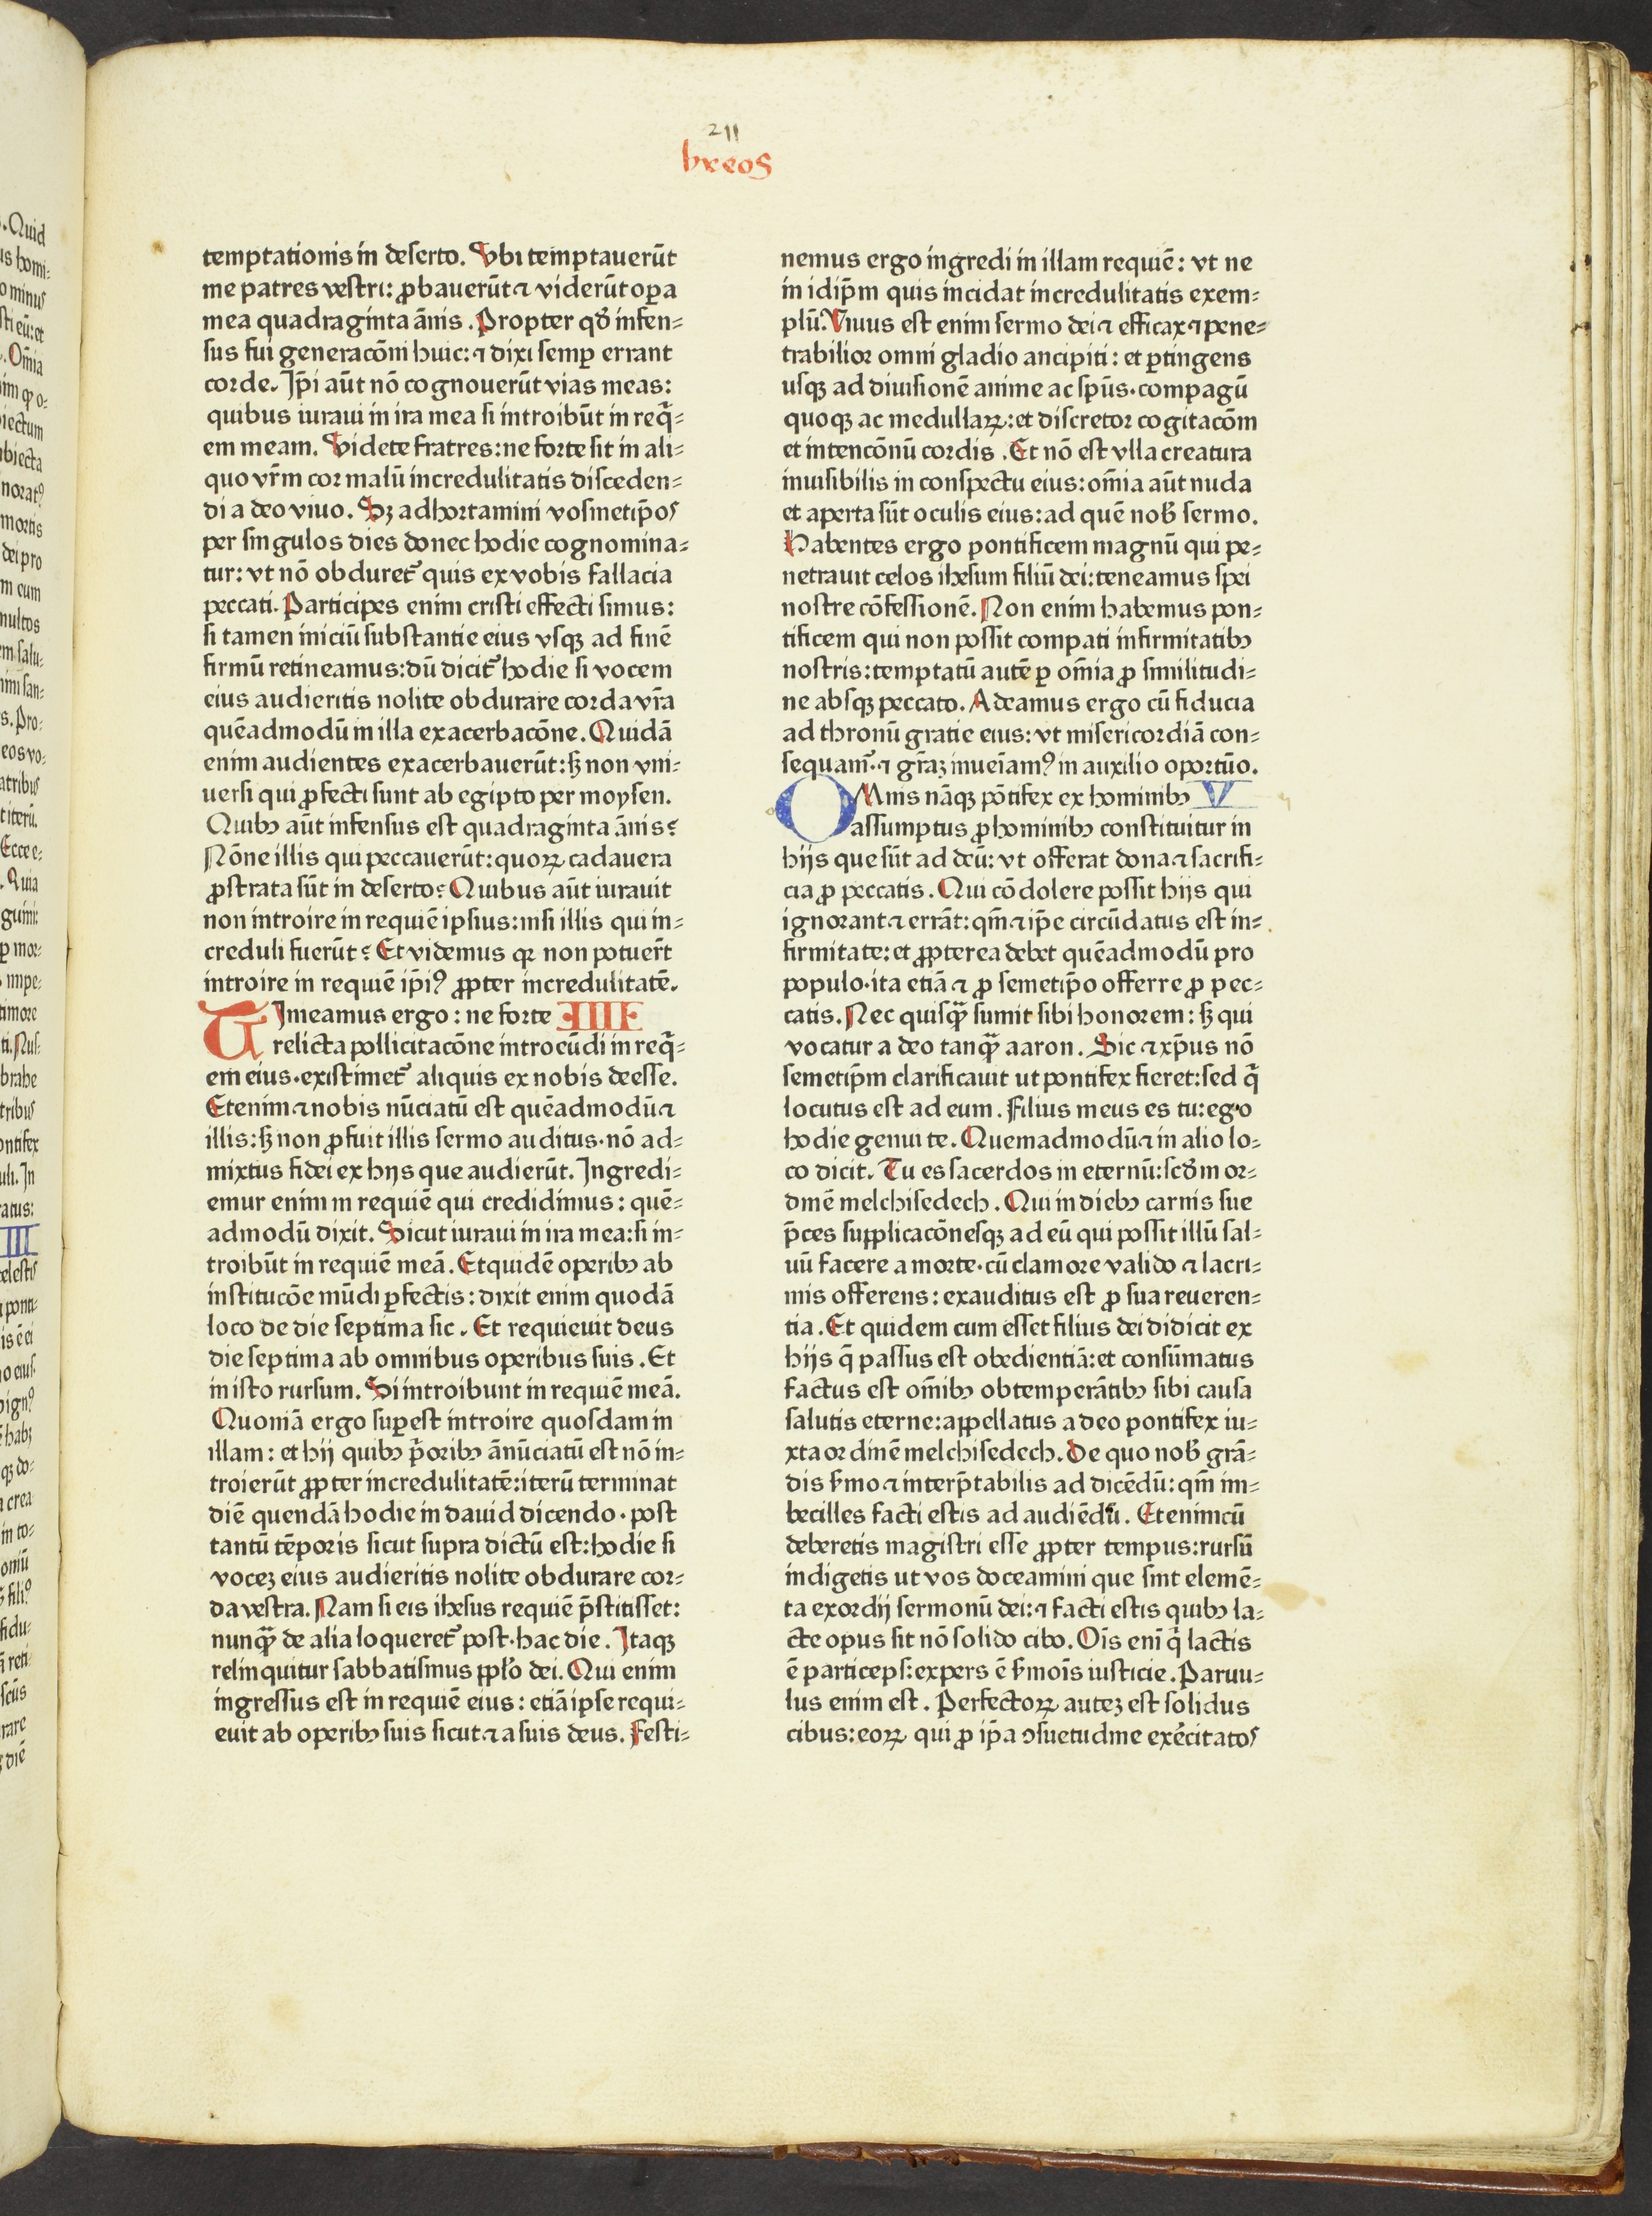 211
hreos
temptationis in deserto. Vbi temptauerūt
me patres vestri: ꝓbauerūt ⁊ viderūt oꝑa
mea quadraginta ānis. Propter qđ infen⸗
sus fui generacōni huic: ⁊ dixi semꝑ errant
corde. Ip̄i aūt nō cognouerūt vias meas:
quibus iuraui in ira mea si introibūt in req̄⸗
em meam. Videte fratres: ne forte sit in ali⸗
quo vr̄m cor malū incredulitatis disceden⸗
di a deo viuo. Sꝫ adhortamini vosmetip̄os
per singulos dies donec hodie cognomina⸗
tur: vt nō obduret᷑ quis ex vobis fallacia
peccati. Participes enim cristi effecti simus:
si tamen iniciū substantie eius vsqꝫ ad finē
firmū retineamus: dū dicit᷑ hodie si vocem
eius audieritis nolite obdurare corda vr̄a
quēadmodū in illa exacerbacōne. Quidā
enim audientes exacerbauerūt: sꝫ non vni⸗
uersi qui ꝓfecti sunt ab egipto per moysen.
Quibꝰ aūt infensus est quadraginta ānis?
Nōne illis qui peccauerūt: quoꝝ cadauera
ꝓstrata sūt in deserto? Quibus aūt iurauit
non introire in requiē ipsius: nisi illis qui in⸗
creduli fuerūt? Et videmus qꝛ non potuer̄t
introire in requiē ip̄iꝰ ꝓpter incredulitatē.
TImeamus ergo: ne forte IIII
relicta pollicitacōne introeūdi in req̄⸗
em eius. existimet᷑ aliquis ex nobis deesse.
Etenim ⁊ nobis nūciatū est quēadmodū ⁊
illis: sꝫ non ꝓfuit illis sermo auditus. nō ad⸗
mixtus fidei ex hijs que audierūt. Ingredi⸗
emur enim in requiē qui credidimus: quē⸗
admodū dixit. Sicut iuraui in ira mea: si in⸗
troibūt in requiē meā. Et quidē operibꝰ ab
institucōe mūdi ꝑfectis: dixit enim quodā
loco de die septima sic. Et requieuit deus
die septima ab omnibus operibus suis. Et
in isto rursum. Si introibunt in requiē meā.
Quoniā ergo suꝑest introire quosdam in
illam: et hij quibꝰ p̄oribꝰ ānūciatū est nō in⸗
troierūt ꝓpter incredulitatē: iterū terminat
diē quendā hodie in dauid dicendo. post
tantū tēporis sicut supra dictū est: hodie si
voceꝫ eius audieritis nolite obdurare cor⸗
da vestra. Nam si eis ihesus requiē p̄stitisset:
nunq̄ꝫ de alia loqueret᷑ post. hac die. Itaqꝫ
relinquitur sabbatismus ppl̄o dei. Qui enim
ingressus est in requiē eius: etiā ipse requi⸗
euit ab operibꝰ suis sicut ⁊ a suis deus. Festi⸗
nemus ergo ingredi in illam requiē: vt ne
in idip̄m quis incidat incredulitatis exem⸗
plū. Viuus est enim sermo dei ⁊ efficax ⁊ pene⸗
trabilior omni gladio ancipiti: et ꝑtingens
usqꝫ ad diuisionē anime ac sp̄us. compagū
quoqꝫ ac medullaꝝ: et discretor cogitacōm
et intencōnū cordis. Et nō est vlla creatura
inuisibilis in conspectu eius: om̄ia aūt nuda
et aperta sūt oculis eius: ad quē nob̄ sermo.
Habentes ergo pontificem magnū qui pe⸗
netrauit celos ihesum filiū dei: teneamus spei
nostre cōfessionē. Non enim habemus pon⸗
tificem qui non possit compati infirmitatibꝰ
nostris: temptatū autē ꝑ om̄ia ꝓ similitudi⸗
ne absqꝫ peccato. Adeamus ergo cū fiducia
ad thronū gratie eius: vt misericordiā con⸗
sequam᷑. ⁊ gr̄aꝫ inueīamꝰ in auxilio oportūo.
OMnis nāqꝫ pōtifex ex hominibꝰ V
assumptus ꝓ hominibꝰ constituitur in
hijs que sūt ad deū: vt offerat dona ⁊ sacrifi⸗
cia ꝓ peccatis. Qui cōdolere possit hijs qui
ignorant ⁊ errāt: qm̄ ⁊ ip̄e circūdatus est in⸗
firmitate: et ꝓpterea debet quēadmodū pro
populo. ita etiā ⁊ ꝓ semetip̄o offerre ꝓ pec⸗
catis. Nec quisq̄ꝫ sumit sibi honorem: sꝫ qui
vocatur a deo tanq̄ꝫ aaron. Sic ⁊ xp̄us nō
semetip̄m clarificauit ut pontifex fieret: sed q̄
locutus est ad eum. Filius meus es tu: ego
hodie genui te. Quemadmodū ⁊ in alio lo⸗
co dicit. Tu es sacerdos in eternū: scd̄m or⸗
dinē melchisedech. Qui in diebꝰ carnis sue
p̄ces supplicacōnesqꝫ ad eū qui possit illū sal⸗
uū facere a morte. cū clamore valido ⁊ lacri⸗
mis offerens: exauditus est ꝓ sua reueren⸗
tia. Et quidem cum esset filius dei didicit ex
hijs q̄ passus est obedientiā: et consūmatus
factus est om̄ibꝰ obtemperātibꝰ sibi causa
salutis eterne: appellatus a deo pontifex iu⸗
xta ordinē melchisedech. De quo nob̄ grā⸗
dis s̄mo ⁊ interp̄tabilis ad dicēdū: qm̄ im⸗
becilles facti estis ad audiēdū. Etenim cū
deberetis magistri esse ꝓpter tempus: rursū
indigetis ut vos doceamini que sint elemē⸗
ta exordij sermonū dei: ⁊ facti estis quibꝰ la⸗
cte opus sit nō solido cibo. Oīs enī q̄ lactis
ē particeps: expers ē s̄moīs iusticie. Paruu⸗
lus enim est. Perfectoꝝ auteꝫ est solidus
cibus: eoꝝ qui ꝓ ip̄a ↄsuetudine exēcitatos